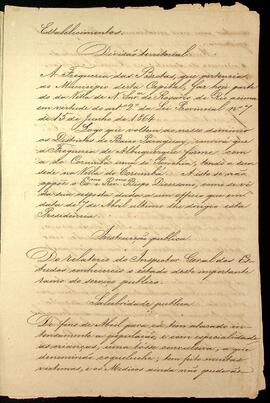 Estabelecimentos.
Divisão territorial
A Freguezia das Brotas, que pertencia
ao Municipio desta Capital, faz hoje parte
da Villa de N. Snrª do Rosario do Rio acima
em virtude do artº 2º da Lei Provincial nº 7
de 15 de Junho de 1864.
Logo que voltem ao nosso dominio
os Districtos do Baixo Paraguay, convirá que
a Freguezia de Albuquerque forme, com
a de Corumbá uma só Parochia, tendo a
sede na Villa de Corumbá. A isto se não
oppõe o Exmo e Rmo Bispo Diocesano, como se vê
da sua resposta dada a um officio que em
data de 7 de Abril ultimo lhe dirigio esta
Presidencia.
Instrucção publica
Do relatorio do Inspector Geral dos Es-
tudos conhecereis o estado deste importante
ramo do serviço publico.
Salubridade publica
De fins de Abril para cá tem atacado in-
tensamente a população, e com especialidade
as crianças, uma tosse convulsiva, a que
denominão coqueluche; tem feito muitas
victimas, e os Medicos ainda não puderão